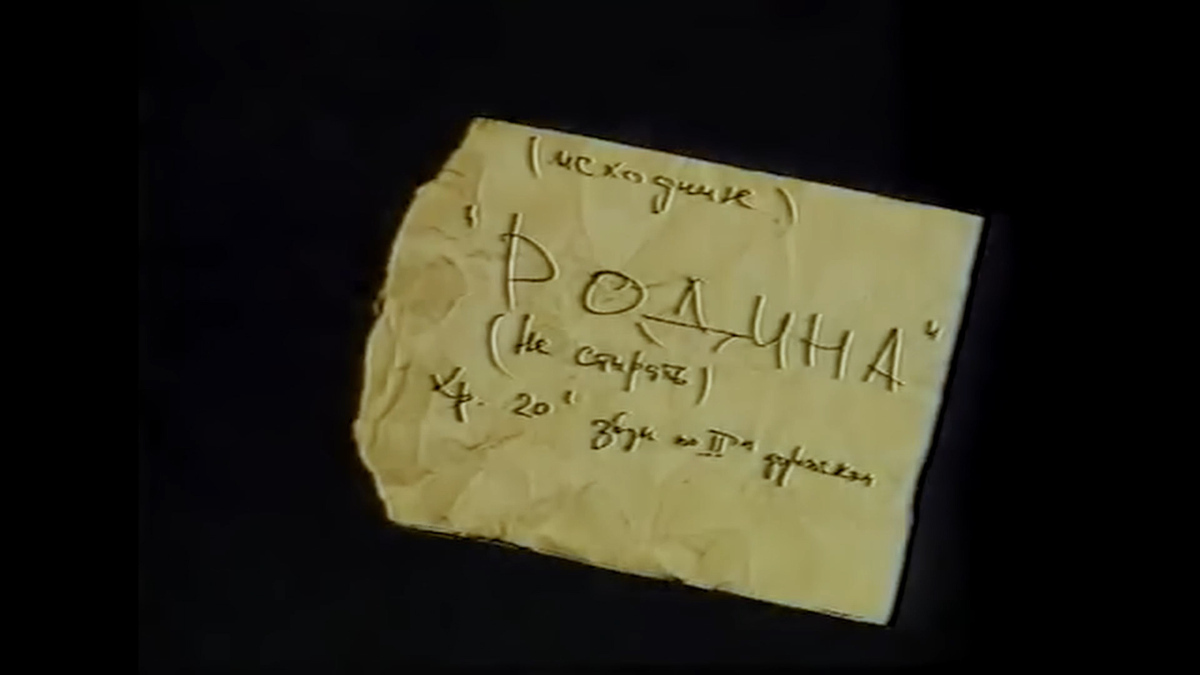 (исходник)
"РОДИНА"
(Не стирать)
Хр. 20' звук на II й дорожках